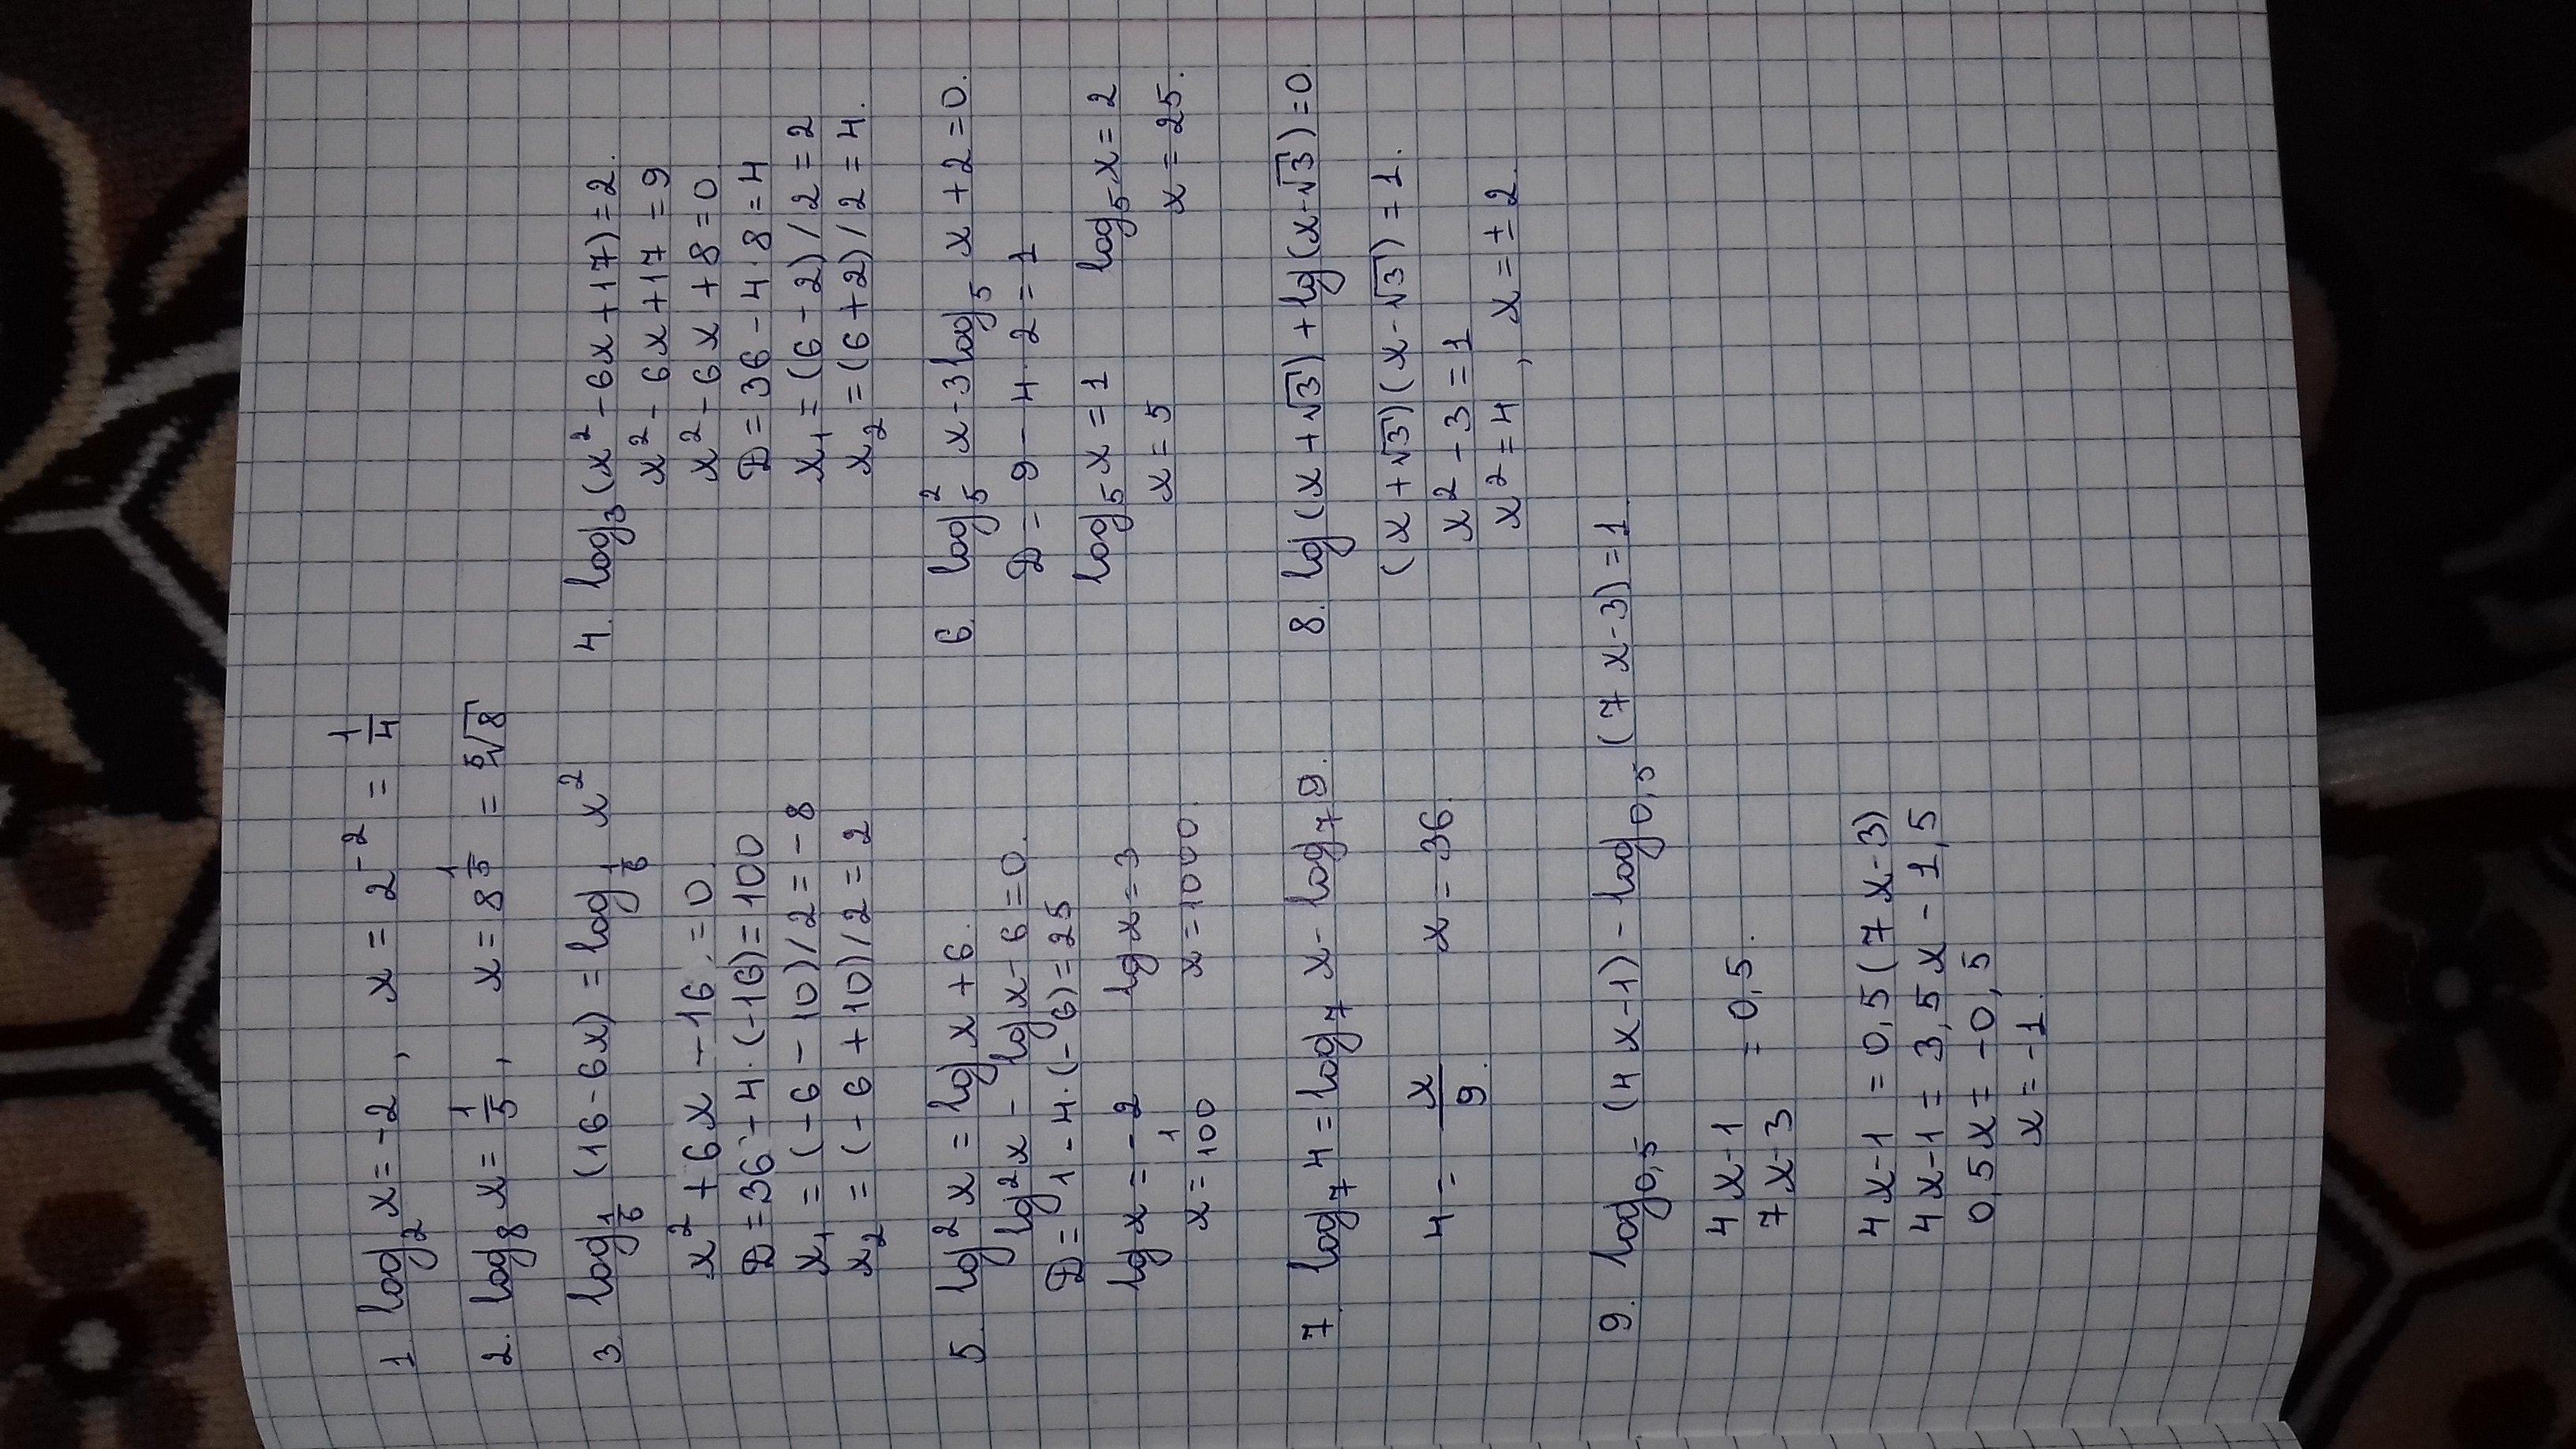 1. log₂ x = -2 , x = 2⁻² = 1/4
2. log₈ x = 1/5 , x = 8^(1/5) = ⁵√8
3. log_(1/6) (16 - 6x) = log_(1/6) x²
x² + 6x - 16 = 0
D = 36 + 4 · (-16) = 100
x₁ = (-6 - 10) / 2 = -8
x₂ = (-6 + 10) / 2 = 2
4. log₃ (x² - 6x + 17) = 2.
x² - 6x + 17 = 9
x² - 6x + 8 = 0
D = 36 - 4 · 8 = 4
x₁ = (6 - 2) / 2 = 2
x₂ = (6 + 2) / 2 = 4.
5. lg² x = lg x + 6.
lg² x - lg x - 6 = 0.
D = 1 - 4 · (-6) = 25
lg x = -2 lg x = 3
x = 1/100 x = 1000.
6. log₅² x - 3 log₅ x + 2 = 0.
D = 9 - 4 · 2 = 1
log₅ x = 1 log₅ x = 2
x = 5 x = 25.
7. log₇ 4 = log₇ x - log₇ 9.
4 = x/9. x = 36.
8. lg (x + √3) + lg (x - √3) = 0.
(x + √3) (x - √3) = 1.
x² - 3 = 1
x² = 4 , x = ± 2.
9. log₀,₅ (4x - 1) - log₀,₅ (7x - 3) = 1
(4x - 1)/(7x - 3) = 0,5.
4x - 1 = 0,5 (7x - 3)
4x - 1 = 3,5x - 1,5
0,5x = -0,5
x = -1.